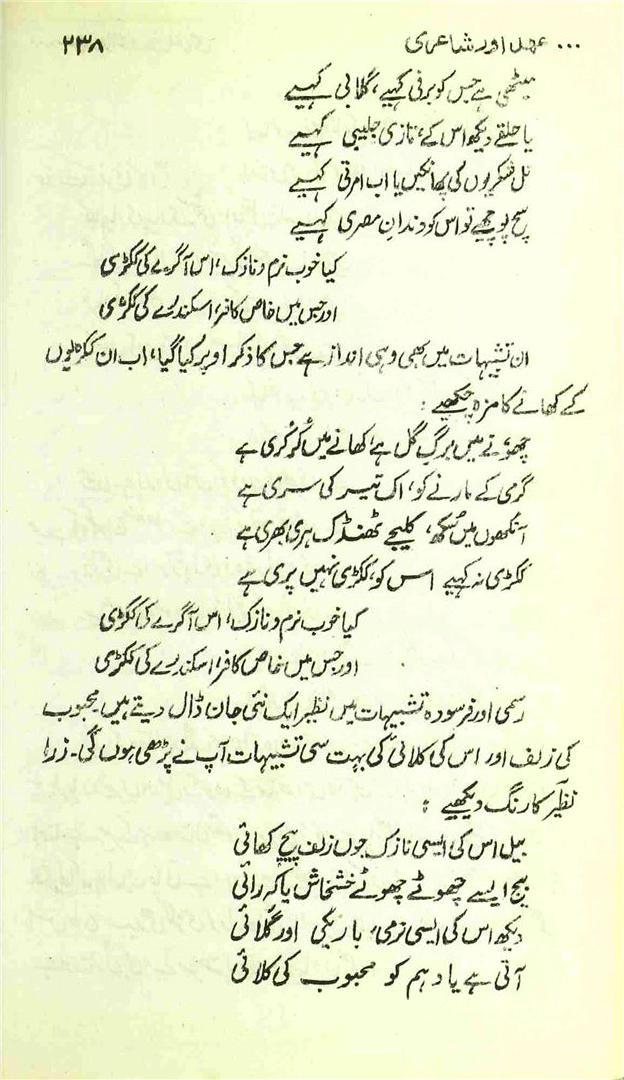 ... عہد اور شاعری ۲۳۸
میٹھی ہے جس کو برفی کہیے، گلابی کہیے
یا حلقے دیکھو اس کے، تازی جلیبی کہیے
تل شکریوں کی پھانکیں یا اب امرتی کہیے
سچ پوچھیے تو اس کو دندانِ مصری کہیے
کیا خوب نرم و نازک، اس آگرے کی ککڑی
اور جس میں خاص کافر، اسکندرے کی ککڑی
ان تشبیہات میں بھی وہی انداز ہے جس کا ذکر اوپر کیا گیا، اب ان ککڑیوں
کے کھانے کا مزہ چکھیے :
چھونے میں برگِ گل ہے، کھانے میں کُرکُری ہے
گرمی کے مارنے کو، اک تیر کی سری ہے
آنکھوں میں سُکھ، کلیجے ٹھنڈک ہری بھری ہے
ککڑی نہ کہیے اس کو، ککڑی نہیں پری ہے
کیا خوب نرم و نازک، اس آگرے کی ککڑی
اور جس میں خاص کافر، اسکندرے کی ککڑی
رسمی اور فرسودہ تشبیہات میں نظیر ایک نئی جان ڈال دیتے ہیں۔ محبوب
کی زلف اور اس کی کلائی کی بہت سی تشبیہات آپ نے پڑھی ہوں گی۔ زرا
نظیر کا رنگ دیکھیے :
بیل اس کی ایسی نازک جوں زلف پیچ کھائی
بیج ایسے چھوٹے چھوٹے خشخاش یا کہ رائی
دیکھ اس کی ایسی نرمی، باریکی اور گلائی
آتی ہے یاد ہم کو محبوب کی کلائی